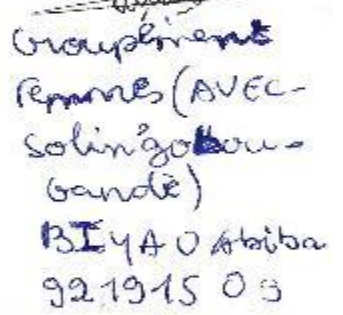 Groupement
femmes (AVEC-
solin'gobou-
Gandè)
BIYAO Abiba
92191509